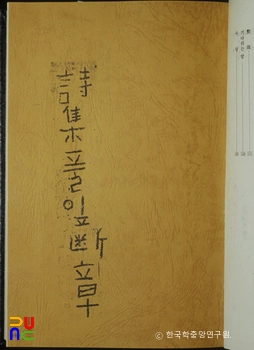 詩集풀잎斷章
© 한국학중앙연구원